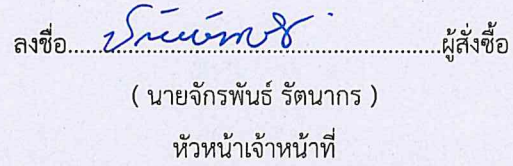 ลงชื่อ..........................................................ผู้สั่งซื้อ
( นายจักรพันธ์ รัตนากร )
หัวหน้าเจ้าหน้าที่